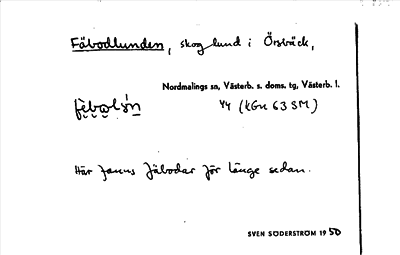 Fäbodlunden, skoglund i Örsbäck,
Nordmalings sn, Västerb. s. doms. tg, Västerb. l.
44 (KGu 63 SM)
Här fanns fäbodar för länge sedan.
SVEN SÖDERSTRÖM 1950